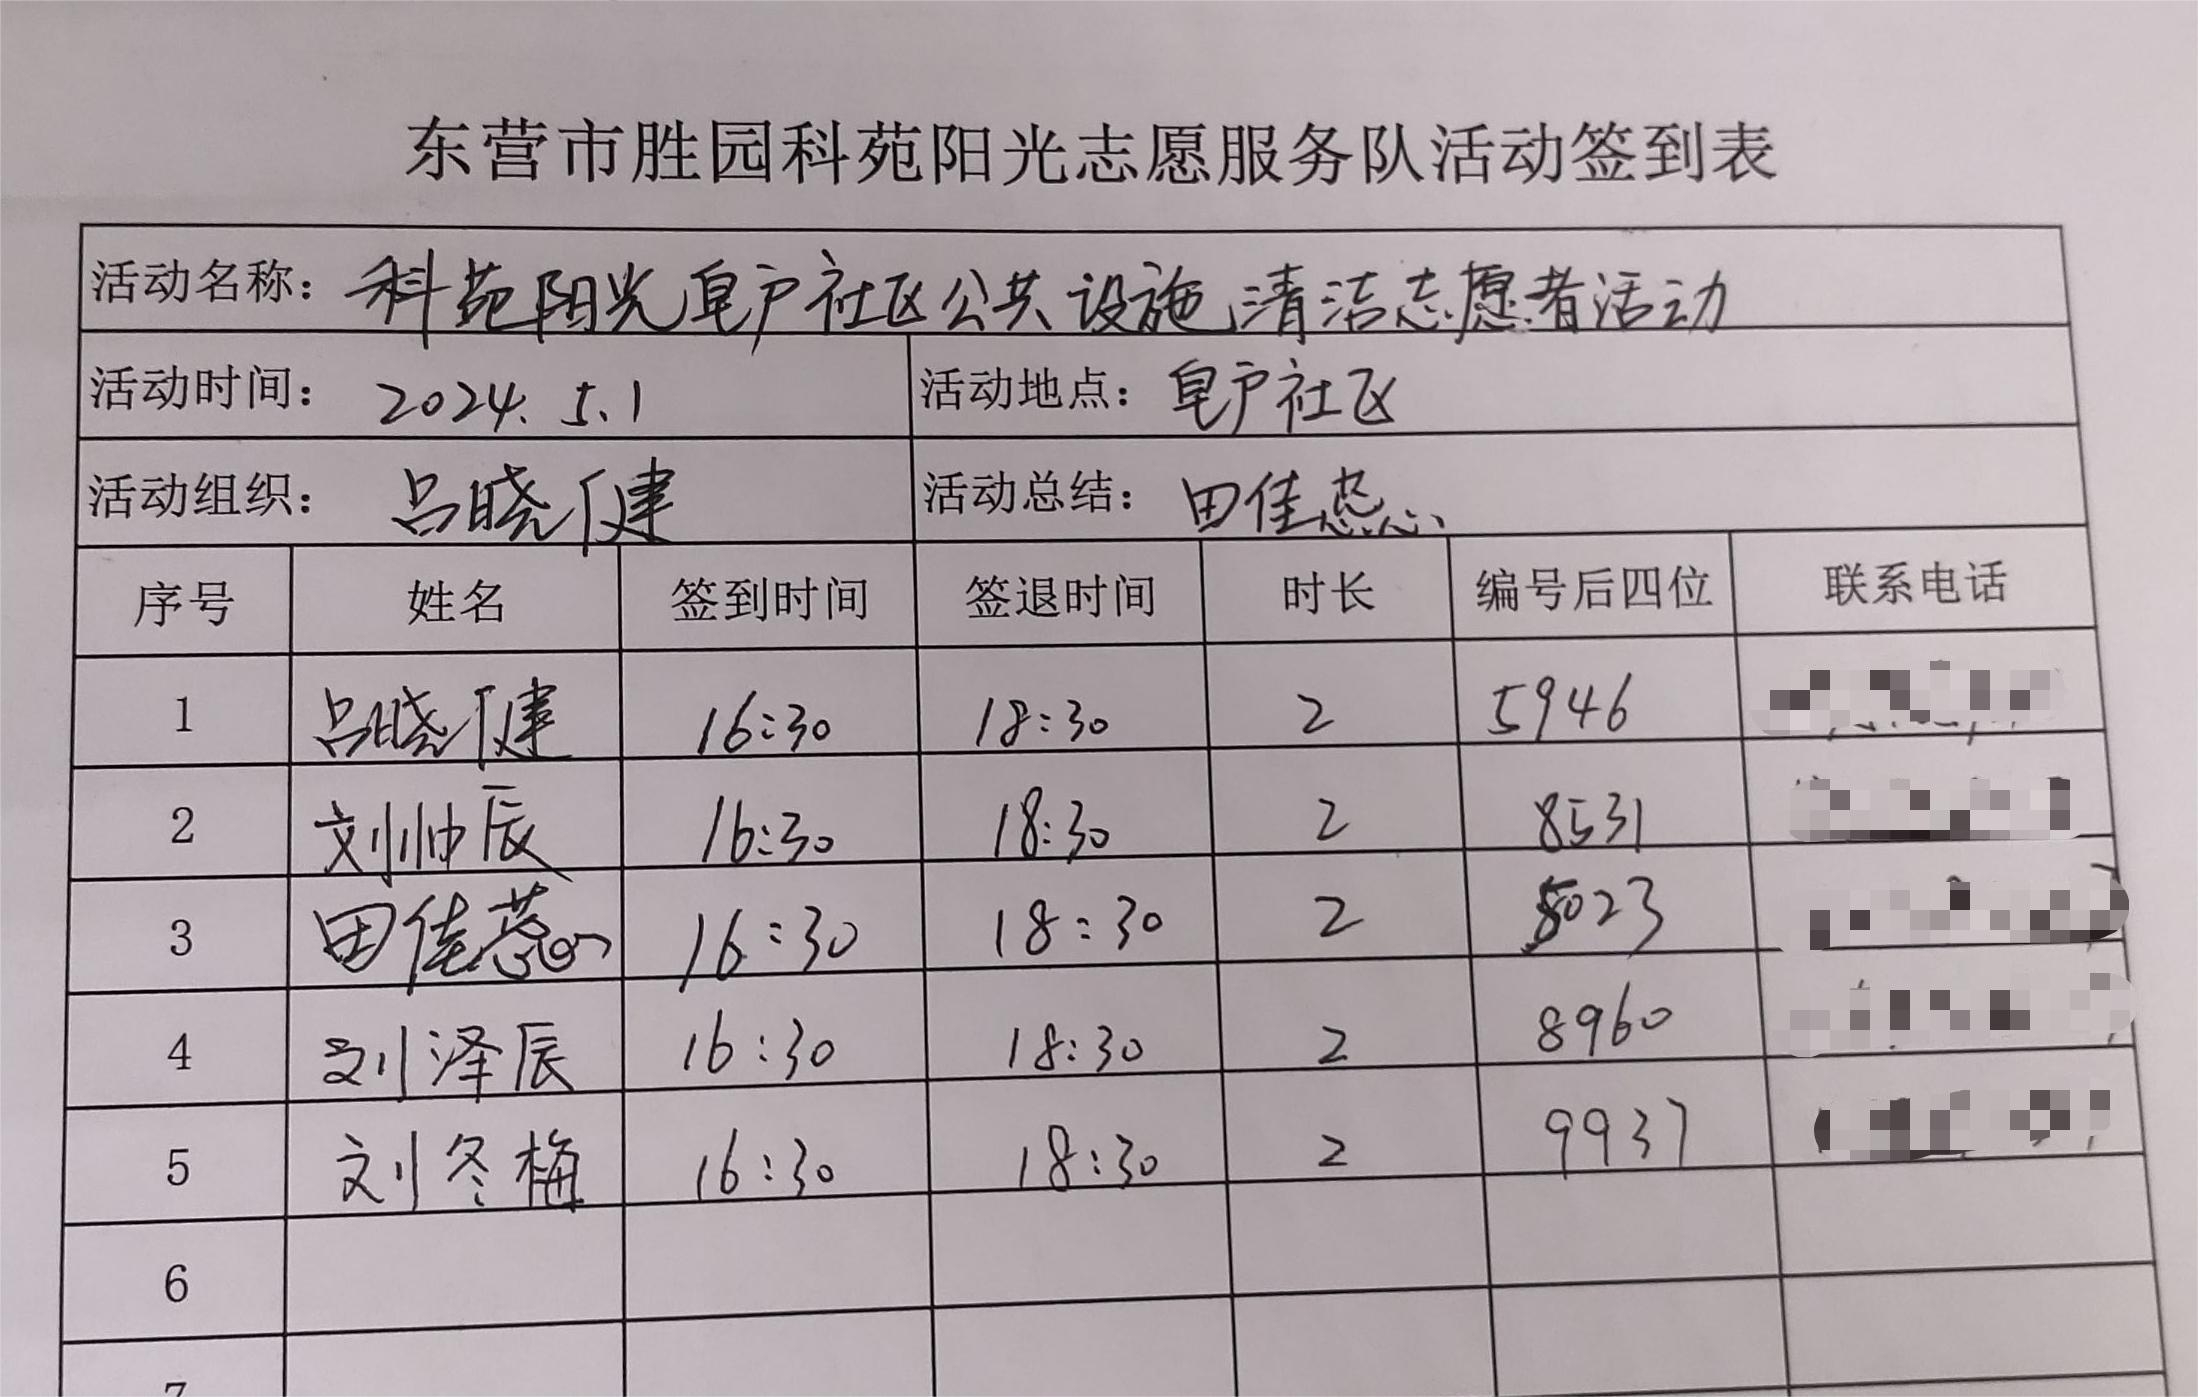 东营市胜园科苑阳光志愿服务队活动签到表
活动名称：科苑阳光皂户社区公共设施清洁志愿者活动
活动时间：2024.5.1 活动地点：皂户社区
活动组织：吕晓健 活动总结：田佳蕊
序号 姓名 签到时间 签退时间 时长 编号后四位 联系电话
1 吕晓健 16:30 18:30 2 5946
2 刘帅辰 16:30 18:30 2 8531
3 田佳蕊 16:30 18:30 2 023
4 刘泽辰 16:30 18:30 2 8960
5 刘冬梅 16:30 18:30 2 9937
6
7